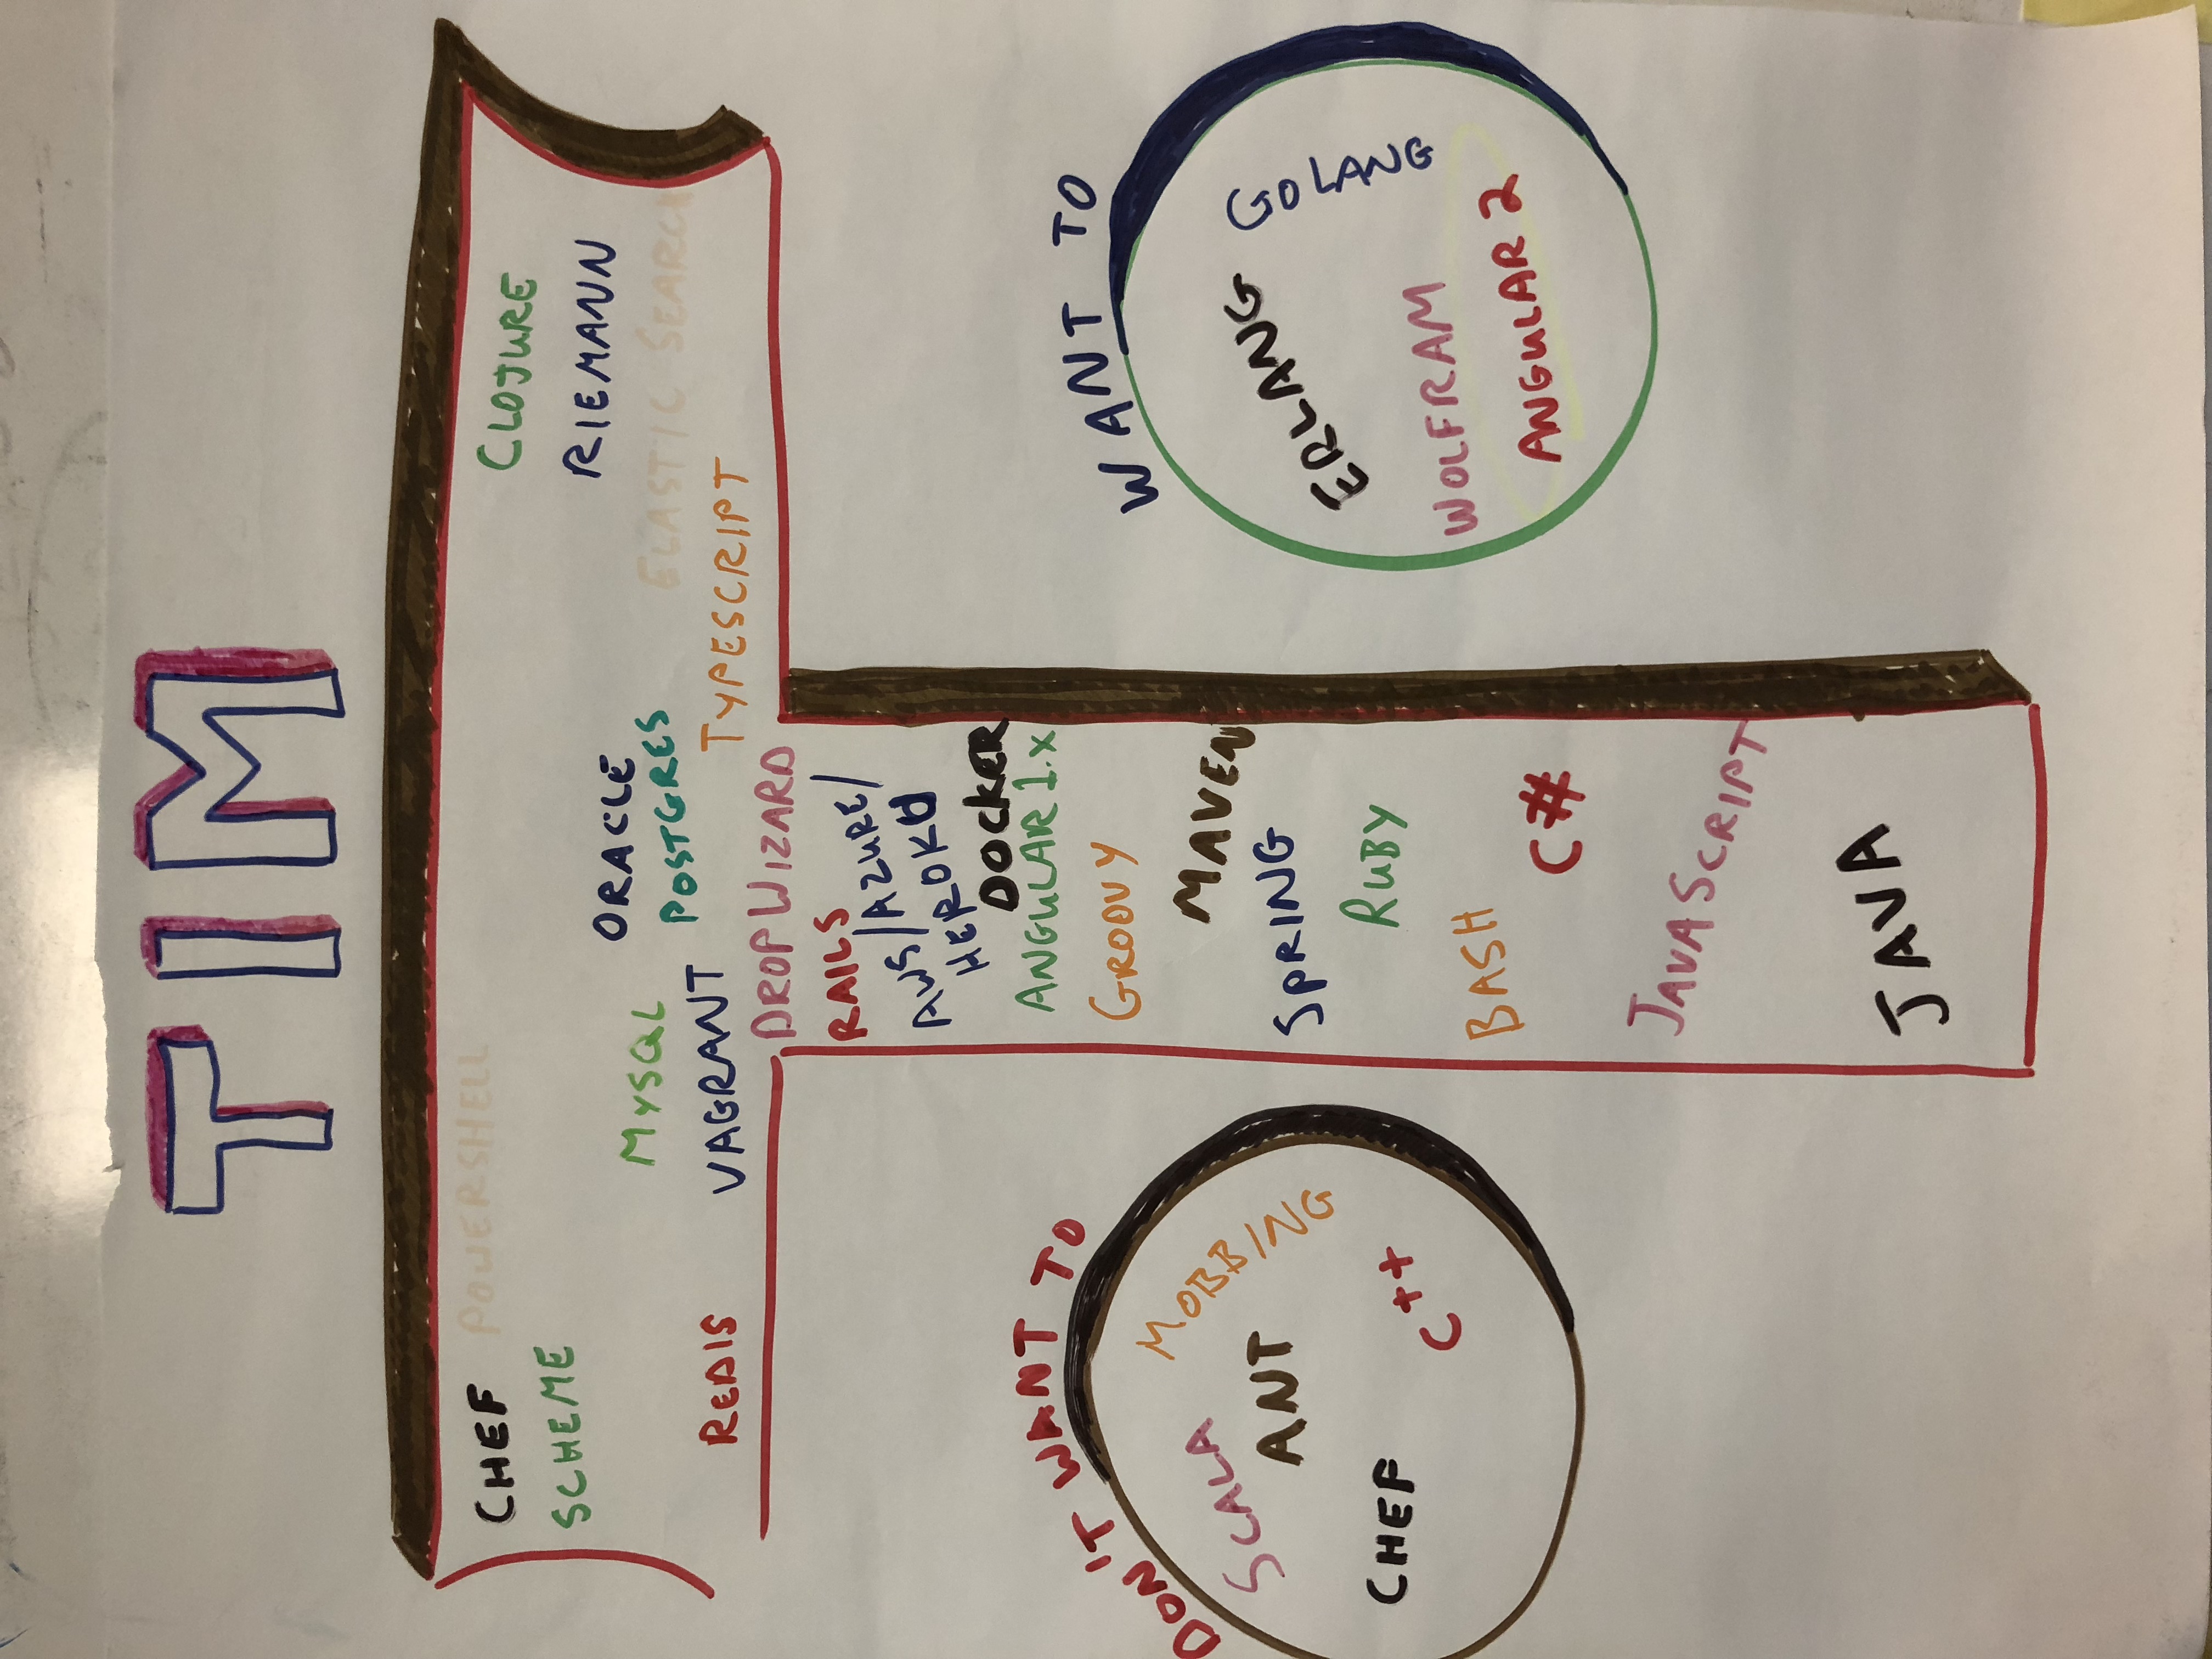 TIM
CHEF POWERSHELL
SCHEME
CLOJURE
RIEMANN
ORACLE
MYSQL
POSTGRES
ELASTIC SEARCH
REDIS
VAGRANT
TYPESCRIPT
DROPWIZARD
RAILS
AWS/AZURE/
HEROKU
DOCKER
ANGULAR 1.x
GROOVY
MAVEN
SPRING
RUBY
BASH
C#
JAVASCRIPT
JAVA
DON'T WANT TO
SCALA
MOBBING
ANT
CHEF
C++
WANT TO
ERLANG
GOLANG
WOLFRAM
ANGULAR 2